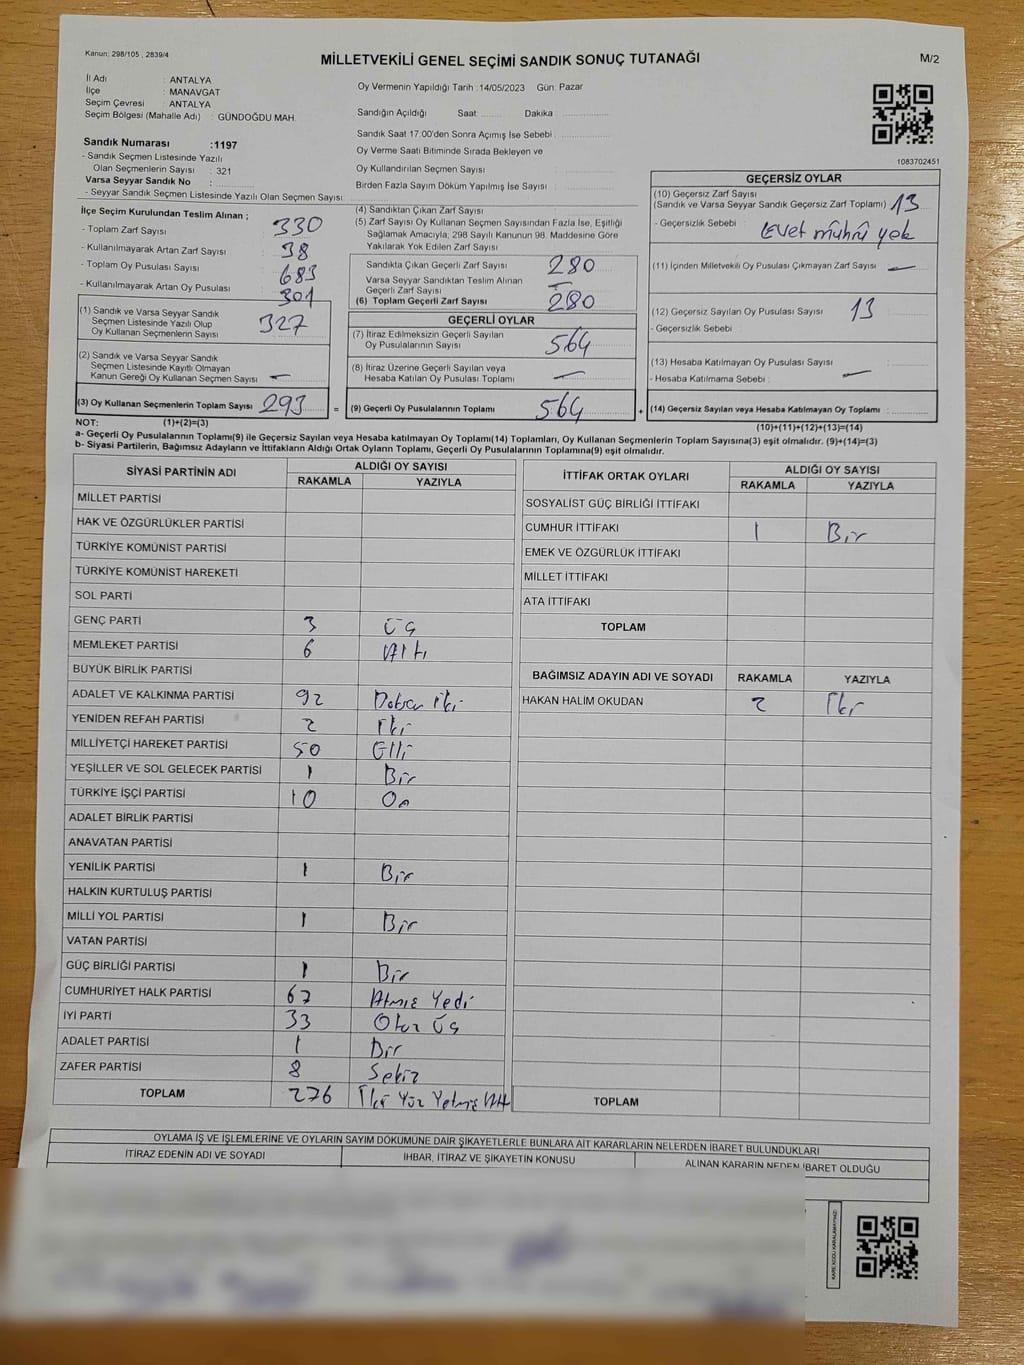 Kanun: 298/105 , 2839/4
MİLLETVEKİLİ GENEL SEÇİMİ SANDIK SONUÇ TUTANAĞI
M/2
İl Adı : ANTALYA
İlçe : MANAVGAT
Seçim Çevresi : ANTALYA
Seçim Bölgesi (Mahalle Adı) : GÜNDOĞDU MAH.
Sandık Numarası :1197
- Sandık Seçmen Listesinde Yazılı
Olan Seçmenlerin Sayısı : 321
Varsa Seyyar Sandık No :
- Seyyar Sandık Seçmen Listesinde Yazılı Olan Seçmen Sayısı :
Oy Vermenin Yapıldığı Tarih :14/05/2023 Gün: Pazar
Sandığın Açıldığı Saat: Dakika :
Sandık Saat 17:00'den Sonra Açımış İse Sebebi :
Oy Verme Saati Bitiminde Sırada Bekleyen ve
Oy Kullandırılan Seçmen Sayısı :
Birden Fazla Sayım Döküm Yapılmış İse Sayısı :
1083702451
İlçe Seçim Kurulundan Teslim Alınan ;
- Toplam Zarf Sayısı : 330
- Kullanılmayarak Artan Zarf Sayısı : 38
- Toplam Oy Pusulası Sayısı : 683
- Kullanılmayarak Artan Oy Pusulası : 301
(1) Sandık ve Varsa Seyyar Sandık
Seçmen Listesinde Yazılı Olup
Oy Kullanan Seçmenlerin Sayısı : 327
(2) Sandık ve Varsa Seyyar Sandık
Seçmen Listesinde Kayıtlı Olmayan
Kanun Gereği Oy Kullanan Seçmen Sayısı : —
(3) Oy Kullanan Seçmenlerin Toplam Sayısı : 293
(4) Sandıktan Çıkan Zarf Sayısı
(5) Zarf Sayısı Oy Kullanan Seçmen Sayısından Fazla İse, Eşitliği
Sağlamak Amacıyla, 298 Sayılı Kanunun 98. Maddesine Göre
Yakılarak Yok Edilen Zarf Sayısı
Sandıkta Çıkan Geçerli Zarf Sayısı : 280
Varsa Seyyar Sandıktan Teslim Alınan
Geçerli Zarf Sayısı : —
(6) Toplam Geçerli Zarf Sayısı : 280
GEÇERLİ OYLAR
(7) İtiraz Edilmeksizin Geçerli Sayılan
Oy Pusulalarının Sayısı : 564
(8) İtiraz Üzerine Geçerli Sayılan veya
Hesaba Katılan Oy Pusulası Toplamı : —
= (9) Geçerli Oy Pusulalarının Toplamı : 564
GEÇERSİZ OYLAR
(10) Geçersiz Zarf Sayısı
(Sandık ve Varsa Seyyar Sandık Geçersiz Zarf Toplamı) : 13
- Geçersizlik Sebebi : Evet mührü yok
(11) İçinden Milletvekili Oy Pusulası Çıkmayan Zarf Sayısı : —
(12) Geçersiz Sayılan Oy Pusulası Sayısı : 13
- Geçersizlik Sebebi :
(13) Hesaba Katılmayan Oy Pusulası Sayısı :
- Hesaba Katılmama Sebebi : —
+ (14) Geçersiz Sayılan veya Hesaba Katılmayan Oy Toplamı :
NOT: (1)+(2)=(3)
(10)+(11)+(12)+(13)=(14)
a- Geçerli Oy Pusulalarının Toplamı(9) ile Geçersiz Sayılan veya Hesaba katılmayan Oy Toplamı(14) Toplamları, Oy Kullanan Seçmenlerin Toplam Sayısına(3) eşit olmalıdır. (9)+(14)=(3)
b- Siyasi Partilerin, Bağımsız Adayların ve İttifakların Aldığı Ortak Oyların Toplamı, Geçerli Oy Pusulalarının Toplamına(9) eşit olmalıdır.
SİYASİ PARTİNİN ADI ALDIĞI OY SAYISI
RAKAMLA YAZIYLA
MİLLET PARTİSİ
HAK VE ÖZGÜRLÜKLER PARTİSİ
TÜRKİYE KOMÜNİST PARTİSİ
TÜRKİYE KOMÜNİST HAREKETİ
SOL PARTİ
GENÇ PARTİ 3 Üç
MEMLEKET PARTİSİ 6 Altı
BÜYÜK BİRLİK PARTİSİ
ADALET VE KALKINMA PARTİSİ 92 Doksan İki
YENİDEN REFAH PARTİSİ 2 İki
MİLLİYETÇİ HAREKET PARTİSİ 50 Elli
YEŞİLLER VE SOL GELECEK PARTİSİ 1 Bir
TÜRKİYE İŞÇİ PARTİSİ 10 On
ADALET BİRLİK PARTİSİ
ANAVATAN PARTİSİ
YENİLİK PARTİSİ 1 Bir
HALKIN KURTULUŞ PARTİSİ
MİLLİ YOL PARTİSİ 1 Bir
VATAN PARTİSİ
GÜÇ BİRLİĞİ PARTİSİ 1 Bir
CUMHURİYET HALK PARTİSİ 67 Atmış Yedi
İYİ PARTİ 33 Otuz Üç
ADALET PARTİSİ 1 Bir
ZAFER PARTİSİ 8 Sekiz
TOPLAM 276 İki Yüz Yetmiş Altı
İTTİFAK ORTAK OYLARI ALDIĞI OY SAYISI
RAKAMLA YAZIYLA
SOSYALİST GÜÇ BİRLİĞİ İTTİFAKI
CUMHUR İTTİFAKI 1 Bir
EMEK VE ÖZGÜRLÜK İTTİFAKI
MİLLET İTTİFAKI
ATA İTTİFAKI
TOPLAM
BAĞIMSIZ ADAYIN ADI VE SOYADI RAKAMLA YAZIYLA
HAKAN HALİM OKUDAN 2 İki
TOPLAM
OYLAMA İŞ VE İŞLEMLERİNE VE OYLARIN SAYIM DÖKÜMÜNE DAİR ŞİKAYETLERLE BUNLARA AİT KARARLARIN NELERDEN İBARET BULUNDUKLARI
İTİRAZ EDENİN ADI VE SOYADI İHBAR, İTİRAZ VE ŞİKAYETİN KONUSU ALINAN KARARIN NEDEN İBARET OLDUĞU
KARE KODU KARALAMAYINIZ!